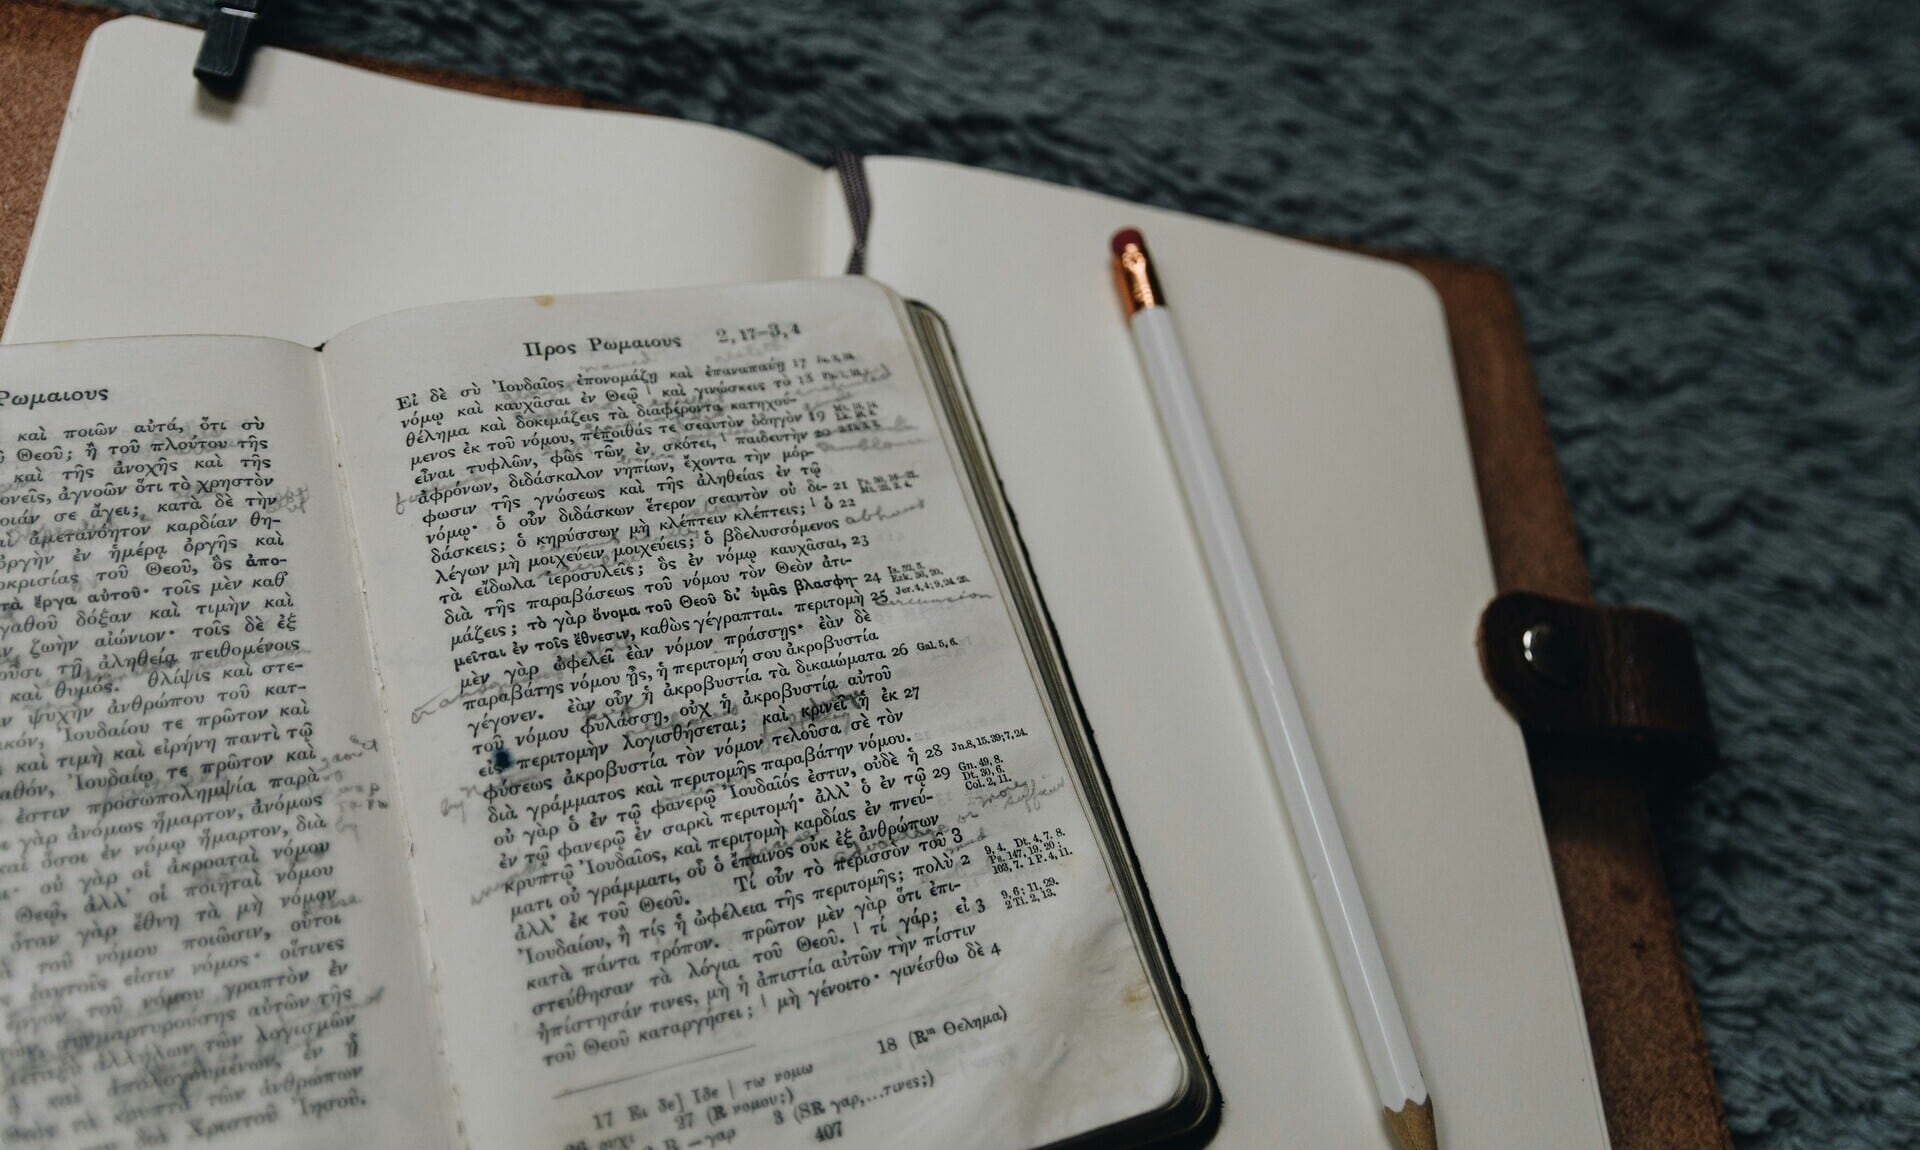 Ρωμαιους
καὶ ποιῶν αὐτά, ὅτι σὺ
Θεοῦ; ἢ τοῦ πλούτου τῆς
καὶ τῆς ἀνοχῆς καὶ τῆς
ἀγνοῶν ὅτι τὸ χρηστὸν
σε ἄγει; κατὰ δὲ τὴν
ἀμετανόητον καρδίαν θη-
ἐν ἡμέρᾳ ὀργῆς καὶ
τοῦ Θεοῦ, ὃς ἀπο-
τὰ ἔργα αὐτοῦ· τοῖς μὲν καθ’
δόξαν καὶ τιμὴν καὶ
ζωὴν αἰώνιον· τοῖς δὲ ἐξ
τῇ ἀληθείᾳ πειθομένοις
καὶ θυμός. θλίψις καὶ στε-
ψυχὴν ἀνθρώπου τοῦ κατ-
Ἰουδαίου τε πρῶτον καὶ
καὶ τιμὴ καὶ εἰρήνη παντὶ τῷ
Ἰουδαίῳ τε πρῶτον καὶ
ἐστιν προσωπολημψία παρὰ
γὰρ ἀνόμως ἥμαρτον, ἀνόμως
ὅσοι ἐν νόμῳ ἥμαρτον, διὰ
οὐ γὰρ οἱ ἀκροαταὶ νόμου
Θεῷ, ἀλλ’ οἱ ποιηταὶ νόμου
ὅταν γὰρ ἔθνη τὰ μὴ νόμον
τοῦ νόμου ποιῶσιν, οὗτοι
ἑαυτοῖς εἰσιν νόμος· οἵτινες
ἔργον τοῦ νόμου γραπτὸν ἐν
αὐτῶν τῆς
ἀλλήλων τῶν λογισμῶν
ἀπολογουμένων, ἐν ᾗ
τὰ κρυπτὰ τῶν ἀνθρώπων
διὰ Χριστοῦ Ἰησοῦ.
Προς Ρωμαιους 2, 17–3, 4
Εἰ δὲ σὺ Ἰουδαῖος ἐπονομάζῃ καὶ ἐπαναπαύῃ 17
νόμῳ καὶ καυχᾶσαι ἐν Θεῷ | καὶ γινώσκεις τὸ 18
θέλημα καὶ δοκιμάζεις τὰ διαφέροντα κατηχού-
μενος ἐκ τοῦ νόμου, πέποιθάς τε σεαυτὸν ὁδηγὸν 19
εἶναι τυφλῶν, φῶς τῶν ἐν σκότει, | παιδευτὴν 20
ἀφρόνων, διδάσκαλον νηπίων, ἔχοντα τὴν μόρ-
φωσιν τῆς γνώσεως καὶ τῆς ἀληθείας ἐν τῷ
νόμῳ· ὁ οὖν διδάσκων ἕτερον σεαυτὸν οὐ δι- 21
δάσκεις; ὁ κηρύσσων μὴ κλέπτειν κλέπτεις; | ὁ 22
λέγων μὴ μοιχεύειν μοιχεύεις; ὁ βδελυσσόμενος abhaus
τὰ εἴδωλα ἱεροσυλεῖς; ὃς ἐν νόμῳ καυχᾶσαι, 23
διὰ τῆς παραβάσεως τοῦ νόμου τὸν Θεὸν ἀτι-
μάζεις; τὸ γὰρ ὄνομα τοῦ Θεοῦ δι’ ὑμᾶς βλασφη- 24 Is. 52, 5. Ezk. 36, 20.
μεῖται ἐν τοῖς ἔθνεσιν, καθὼς γέγραπται. περιτομὴ 25 Jer. 4, 4; 9, 24. 25.
μὲν γὰρ ὠφελεῖ ἐὰν νόμον πράσσῃς· ἐὰν δὲ
παραβάτης νόμου ᾖς, ἡ περιτομή σου ἀκροβυστία
γέγονεν. ἐὰν οὖν ἡ ἀκροβυστία τὰ δικαιώματα 26 Gal. 5, 6.
τοῦ νόμου φυλάσσῃ, οὐχ ἡ ἀκροβυστία αὐτοῦ
εἰς περιτομὴν λογισθήσεται; καὶ κρινεῖ ἡ ἐκ 27
φύσεως ἀκροβυστία τὸν νόμον τελοῦσα σὲ τὸν
διὰ γράμματος καὶ περιτομῆς παραβάτην νόμου.
οὐ γὰρ ὁ ἐν τῷ φανερῷ Ἰουδαῖός ἐστιν, οὐδὲ ἡ 28 Jn. 8, 15. 39; 7, 24.
ἐν τῷ φανερῷ ἐν σαρκὶ περιτομή· ἀλλ’ ὁ ἐν τῷ 29 Gn. 49, 8. Dt. 30, 6. Col. 2, 11.
κρυπτῷ Ἰουδαῖος, καὶ περιτομὴ καρδίας ἐν πνεύ-
ματι οὐ γράμματι, οὗ ὁ ἔπαινος οὐκ ἐξ ἀνθρώπων
ἀλλ’ ἐκ τοῦ Θεοῦ. Τί οὖν τὸ περισσὸν τοῦ 3
Ἰουδαίου, ἢ τίς ἡ ὠφέλεια τῆς περιτομῆς; πολὺ 2 9, 4. Dt. 4, 7. 8. Ps. 147, 19. 20; 103, 7. 1 P. 4, 11.
κατὰ πάντα τρόπον. πρῶτον μὲν γὰρ ὅτι ἐπι-
στεύθησαν τὰ λόγια τοῦ Θεοῦ. | τί γάρ; εἰ 3 9, 6; 11, 29. 2 Ti. 2, 13.
ἠπίστησάν τινες, μὴ ἡ ἀπιστία αὐτῶν τὴν πίστιν
τοῦ Θεοῦ καταργήσει; | μὴ γένοιτο· γινέσθω δὲ 4
17 Ει δε] Ιδε | τω νομω 18 (Rᵐ Θελημα)
27 (R νομου;) 3 (SR γαρ,...τινες;)
R –γαρ
407